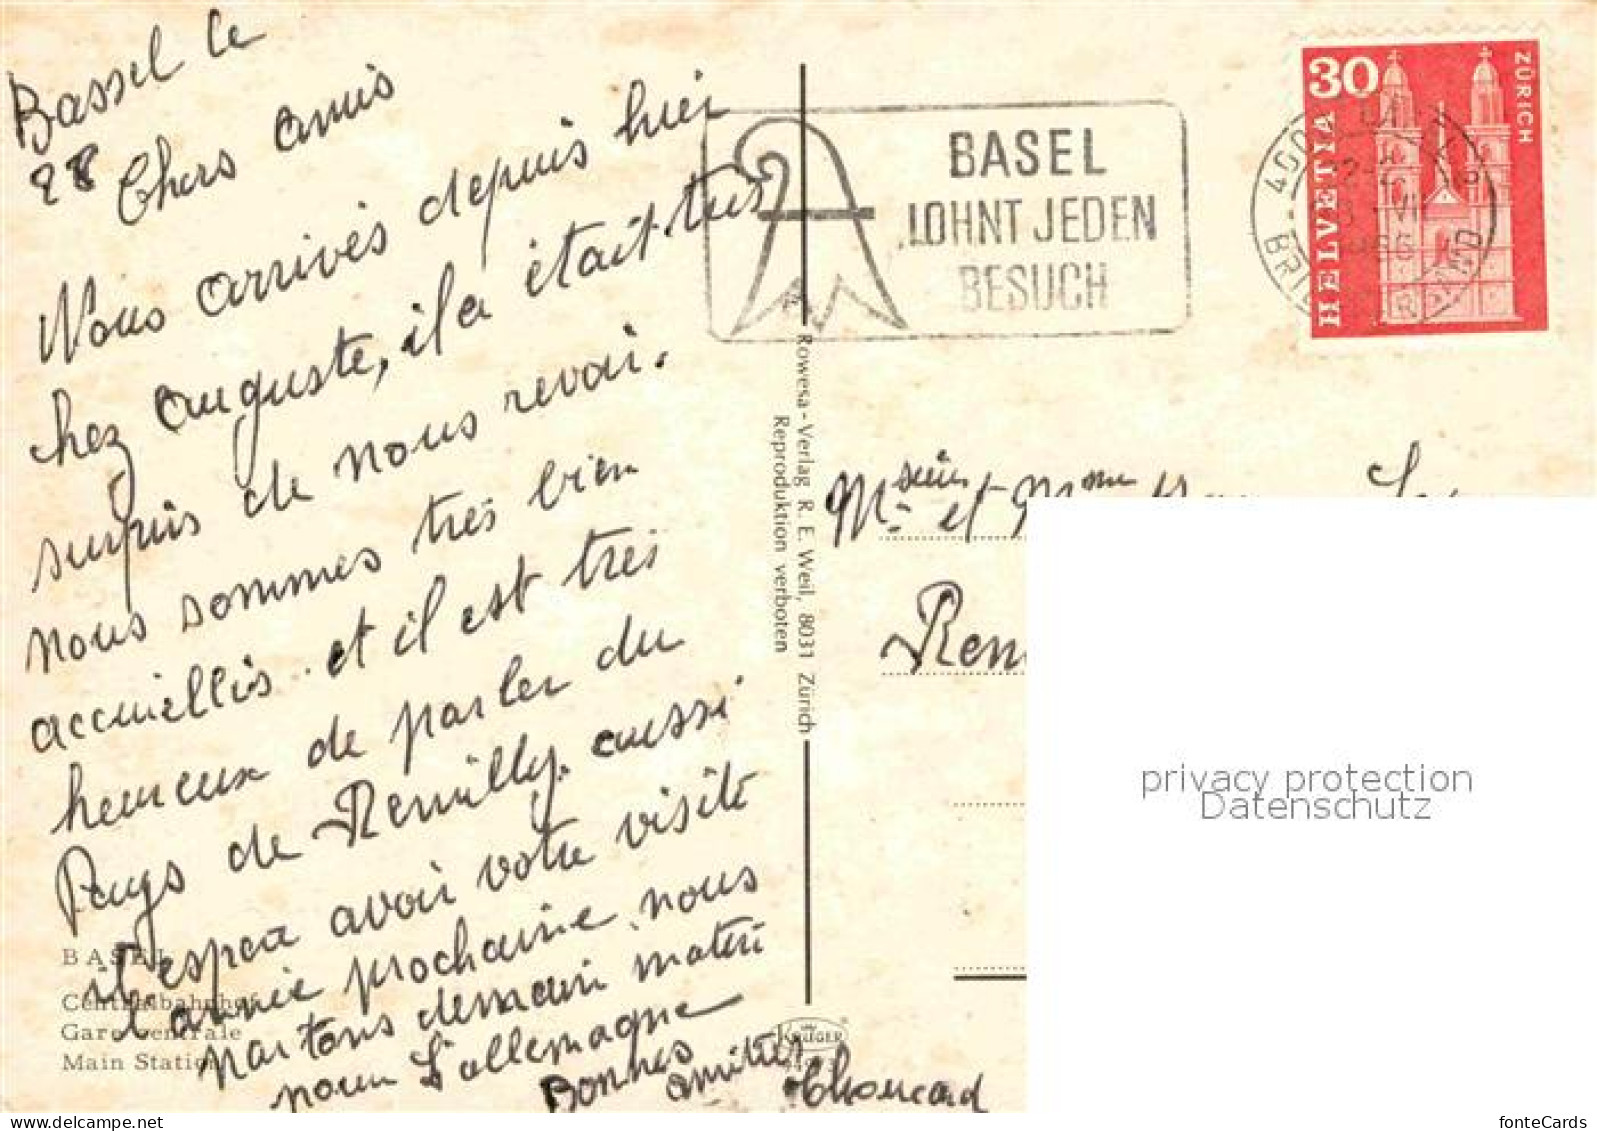 Bassel le
28
Chers amis
Nous arrivés depuis hier
chez auguste, il a était très
surpris de nous revoir.
nous sommes très bien
accueillis et il est très
heureux de parler du
Pays de Remilly. aussi
il espèa avoir votre visite
l'année prochaine nous
partons demain matin
pour l'allemagne
Bonnes
amitiés
BASEL
Centralbahnhof
Gare centrale
Main Station
Rowesa-Verlag R. E. Weil, 8031 Zürich
Reproduktion verboten
KRÜGER
BASEL
LOHNT JEDEN
BESUCH
30
ZÜRICH
HELVETIA
Msieur et Mme
privacy protection
Datenschutz
fonteCards